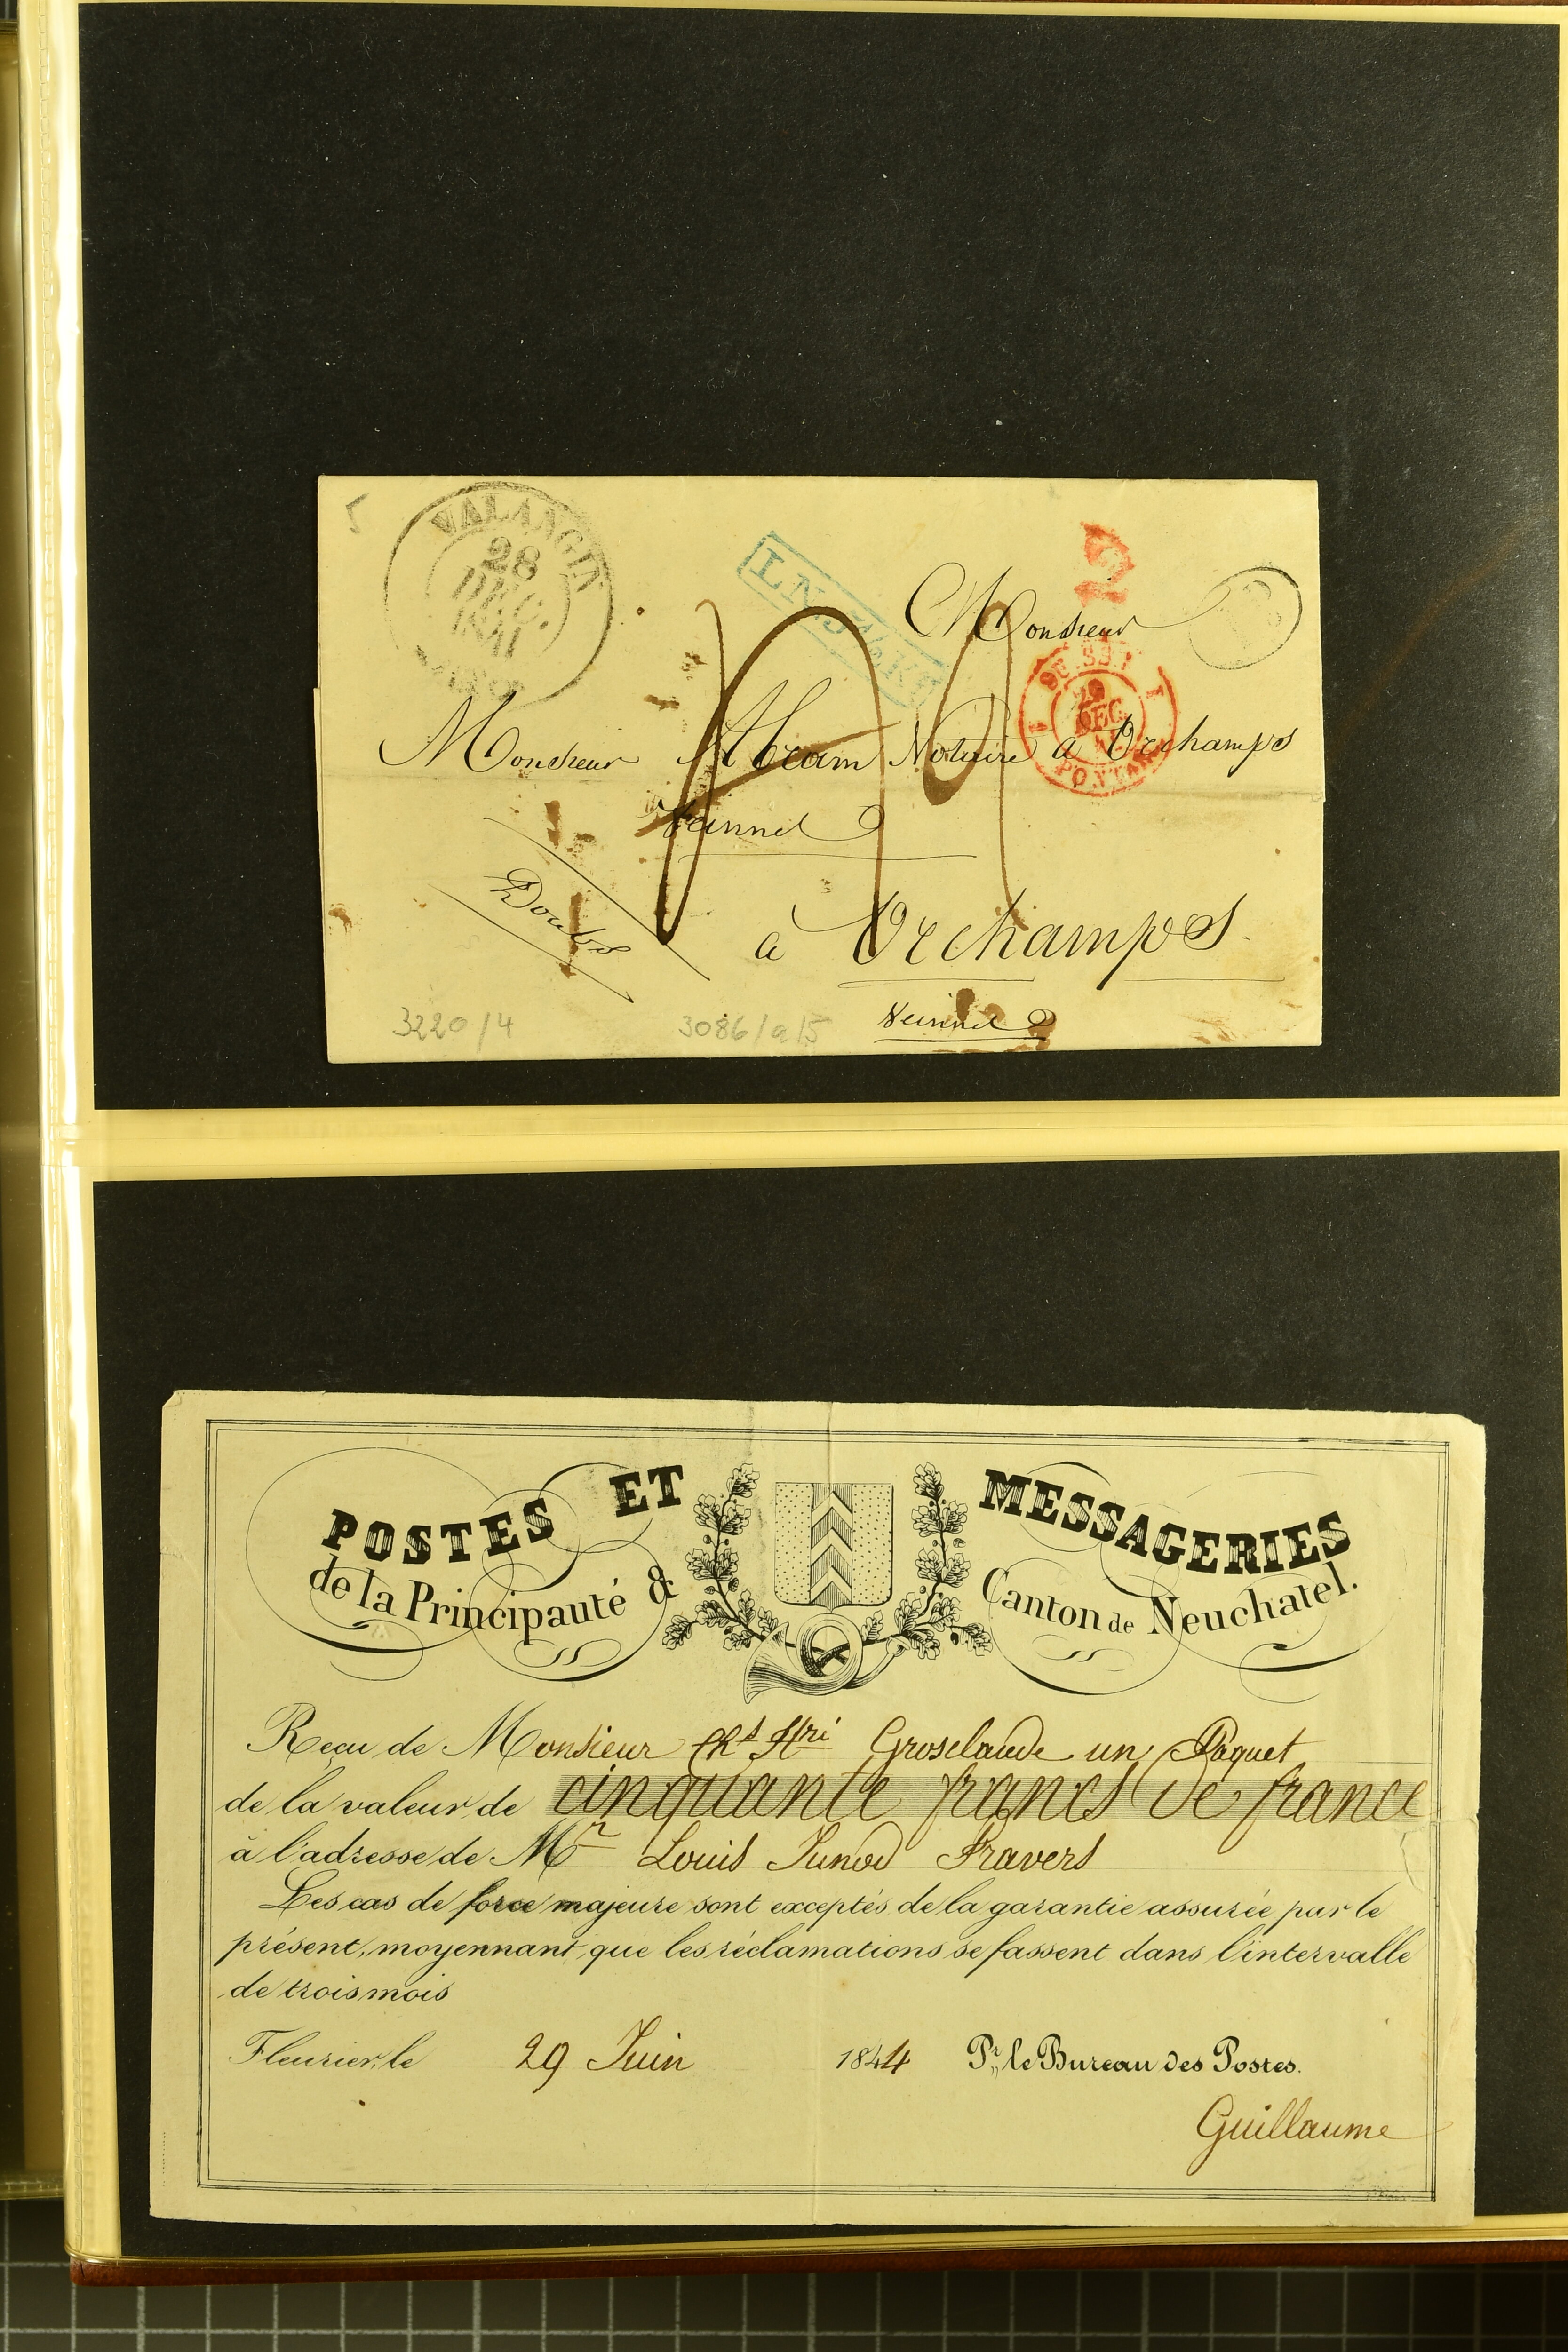 VALANGIN
28
DEC.
1841
LNJ. 1/2 Kr
2
Monsieur
SUISSE
29
DEC.
41
PONTARLIER
Monsieur Abram Notaire à Orchamps
Vennel
Doubs
à Orchamps
Vennel
3220/4
3086/a/5
POSTES ET MESSAGERIES
de la Principauté & Canton de Neuchatel.
Reçu de Monsieur Chs Hri Grosclaude un Paquet
de la valeur de cinquante francs de france
à l'adresse de Mr Louis Junod Travers
Les cas de force majeure sont exceptés de la garantie assurée par le
présent, moyennant que les réclamations se fassent dans l'intervalle
de trois mois
Fleurier, le 29 Juin 1844 Pr. le Bureau des Postes.
Guillaume